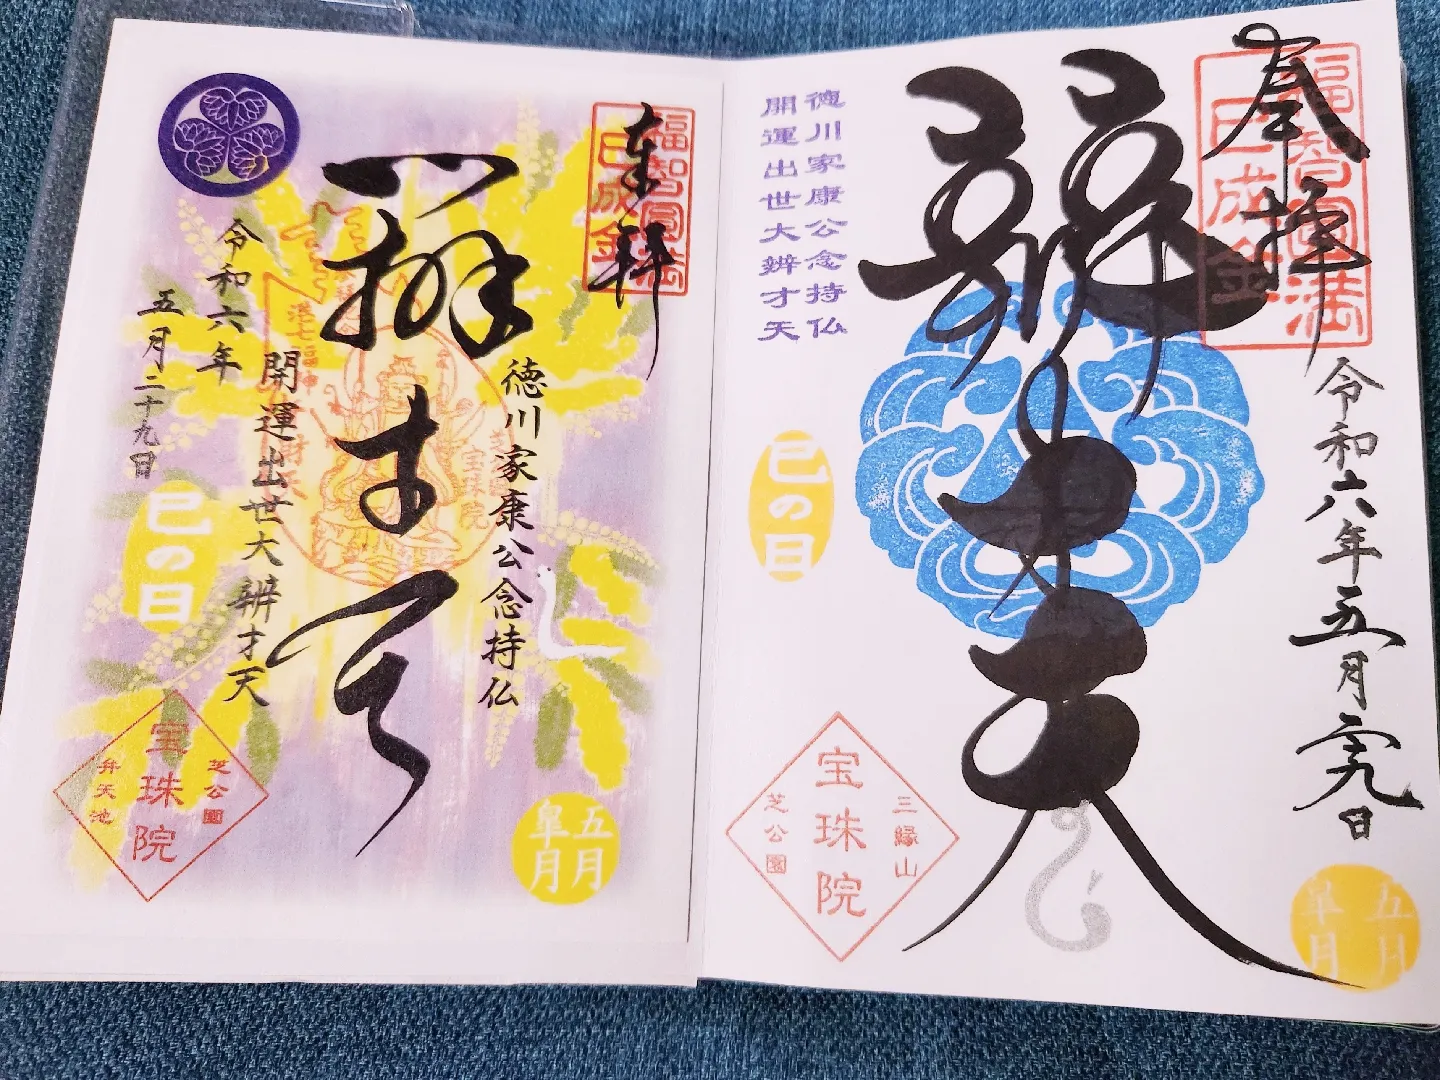 奉拝
福智圓満
巳成金
辨才天
徳川家康公念持仏
開運出世大辨才天
令和六年
五月二十九日
巳の日
港七福神
宝珠院
芝公園
宝珠院
弁天池
五月
皐月
奉拝
福智圓満
巳成金
辨才天
徳川家康公念持仏
開運出世大辨才天
令和六年五月二十九日
巳の日
三縁山
宝珠院
芝公園
五月
皐月